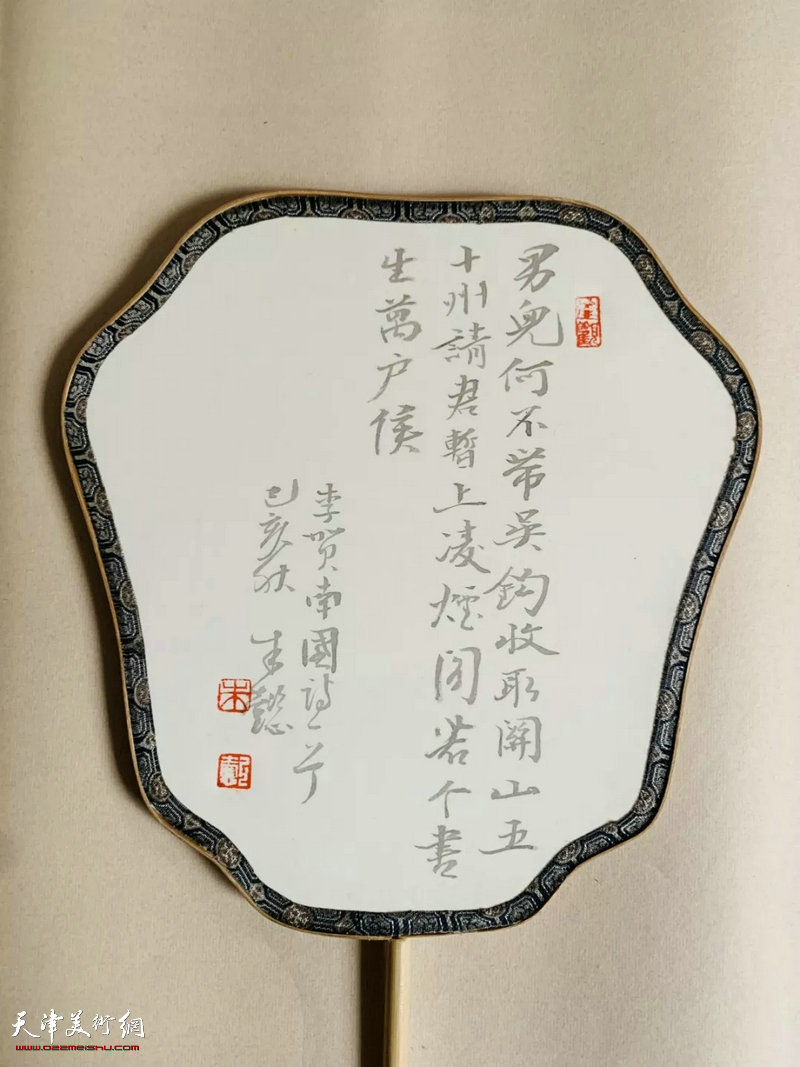 男兒何不帶吳鉤收取關山五
十州請君暫上凌煙閣若个書
生萬户侯
李賀南國詩一首
己亥秋 朱懿
朱
懿
天津美術網
www.022meishu.com